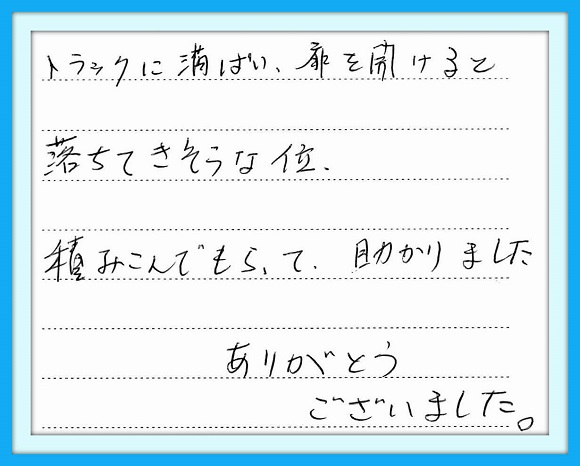 トラックに満ぱい、扉を開けると
落ちてきそうな位、
積みこんでもらって、助かりました
ありがとう
ございました。